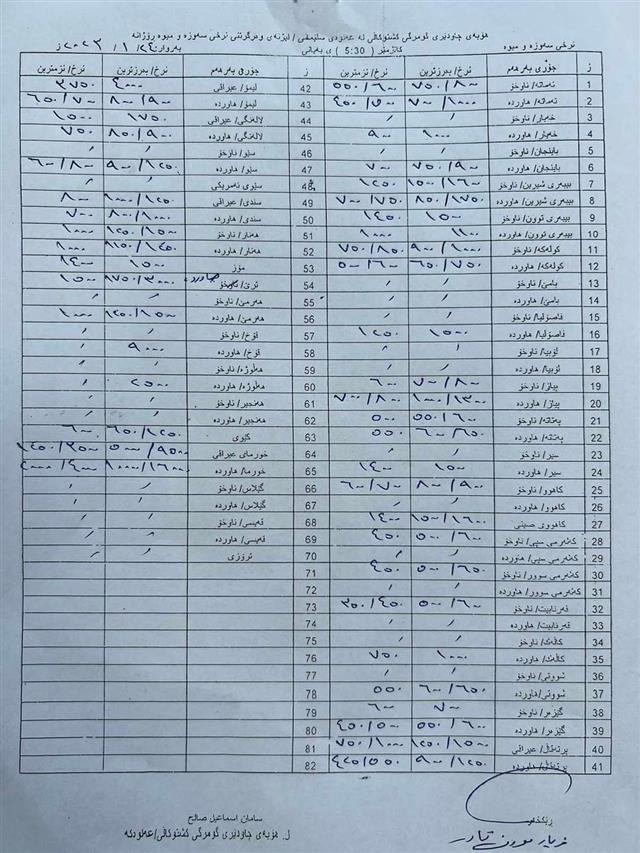 هۆبەی چاودێری گومرگی کشتوکاڵی لە عەلوەی سلێمانی / لیژنەی وەرگرتنی نرخی سەوزە و میوە ڕۆژانە
نرخی سەوزە و میوە کاتژمێر ( 5:30 ) ی بەیانی بەروار: ٢٤ / ١ / ٢٠٢٣ ز
ز جۆری بەرهەم نرخ/ بەرزترین نرخ/ نزمترین ز جۆری بەرهەم نرخ/ بەرزترین نرخ/ نزمترین
1 تەماتە/ ناوخۆ ٧٥٠/٨٠٠ ٥٥٠/٦٠٠ 42 لیمۆ/ عیراقی ٤٠٠٠ ٣٧٥٠
2 تەماتە/ هاوردە ٧٠٠/١٠٠٠ ٤٥٠/٥٠٠ 43 لیمۆ/ هاوردە ٨٠٠/٩٠٠ ٦٥٠/٧٠٠
3 خەیار/ ناوخۆ / / 44 لالەنگی/ عیراقی ١٧٥٠ ١٥٠٠
4 خەیار/ هاوردە ١٠٠٠ ٩٠٠ 45 لالەنگی/ هاوردە ٨٥٠/٩٠٠ ٧٥٠
5 باینجان/ ناوخۆ / / 46 سێو/ ناوخۆ / /
6 باینجان/ هاوردە ٧٥٠/٩٠٠ ٧٠٠ 47 سێو/ هاوردە ٩٠٠/١٢٥٠ ٦٠٠/٨٠٠
7 بیبەری شیرین/ ناوخۆ ١٥٠٠/١٦٠٠ ١٢٥٠ 48 سێوی ئەمریکی / /
8 بیبەری شیرین/ هاوردە ٨٥٠/١٧٥٠ ٧٠٠/٧٥٠ 49 سندی/ عیراقی ١٠٠٠/١٢٥٠ ٨٠٠
9 بیبەری توون/ ناوخۆ ١٥٠٠ ١٤٥٠ 50 سندی/ هاوردە ٨٠٠/١٠٠٠ ٧٠٠
10 بیبەری توون/ هاوردە ١١٠٠ ١٠٠٠ 51 هەنار/ ناوخۆ ١٢٥٠/١٥٠٠ ١٠٠٠
11 کولەکە/ ناوخۆ ٩٠٠/١٠٠٠ ٧٥٠/٨٥٠ 52 هەنار/ هاوردە ١١٥٠/١٢٥٠ ١٠٠٠
12 کولەکە/ هاوردە ٦٥٠/٧٥٠ ٥٠٠/٦٠٠ 53 مۆز ١٥٠٠ ١٤٠٠
13 بامێ/ ناوخۆ / / 54 ترێ/ ١٧٥٠/٣٠٠٠ ١٥٠٠
14 بامێ/ هاوردە / / 55 هەرمێ/ ناوخۆ / /
15 فاسۆلیا/ ناوخۆ / / 56 هەرمێ/ هاوردە ١٢٥٠/١٥٠٠ ١٠٠٠
16 فاسۆلیا/ هاوردە ١٥٠٠ ١٢٥٠ 57 قۆخ/ ناوخۆ / /
17 لۆبیا/ ناوخۆ / / 58 قۆخ/ هاوردە ٩٠٠٠ /
18 لۆبیا/ هاوردە / / 59 هەڵوژە/ ناوخۆ / /
19 پیاز/ ناوخۆ ٧٠٠/٨٠٠ ٦٠٠ 60 هەڵوژە/ هاوردە ٢٥٠٠ /
20 پیاز/ هاوردە ١٠٠٠/١٣٠٠ ٧٠٠/٨٠٠ 61 هەنجیر/ ناوخۆ / /
21 پەتاتە/ ناوخۆ ٥٥٠/٦٠٠ ٥٠٠ 62 هەنجیر/ هاوردە / /
22 پەتاتە/ هاوردە ٦٠٠/٦٥٠ ٥٥٠ 63 کیوی ٦٥٠/١٢٥٠ ٦٠٠
23 سیر/ ناوخۆ / / 64 خورمای عیراقی ٥٠٠٠/٩٥٠٠ ١٤٥٠/٣٥٠٠
24 سیر/ هاوردە ١٥٠٠ ١٤٠٠ 65 خورما/ هاوردە ١٠٠٠٠/١٦٠٠٠
25 کاهوو/ ناوخۆ ٨٠٠/٩٠٠ ٦٠٠/٧٠٠ 66 گێلاس/ ناوخۆ / /
26 کاهوو/ هاوردە / / 67 گێلاس/ هاوردە / /
27 کاهووی صینی ١٥٠٠/١٦٠٠ ١٤٠٠ 68 قەیسی/ ناوخۆ / /
28 کەلەرمی سپی/ ناوخۆ ٥٠٠/٦٠٠ ٤٥٠ 69 قەیسی/ هاوردە / /
29 کەلەرمی سپی/ هاوردە / / 70 تروزی / /
30 کەلەرمی سوور/ ناوخۆ ٥٠٠/٦٥٠ ٤٥٠ 71
31 کەلەرمی سوور/ هاوردە / / 72
32 قەرنابیت/ ناوخۆ ٥٠٠/٦٠٠ ٣٥٠/٤٥٠ 73
33 قەرنابیت/ هاوردە / / 74
34 کاڵەک/ ناوخۆ / / 75
35 کاڵەک/ هاوردە ١٠٠٠ ٧٥٠ 76
36 شووتی/ ناوخۆ / / 77
37 شووتی/هاوردە ٦٠٠/٦٥٠ ٥٥٠ 78
38 گێزەر/ ناوخۆ ٧٠٠ ٦٠٠ 79
39 گێزەر/ هاوردە ٥٥٠/٦٠٠ ٤٥٠/٥٠٠ 80
40 پرتەقاڵ/ عیراقی ١٢٥٠/١٥٠٠ ٧٥٠/١٠٠٠ 81
41 پرتەقاڵ/ هاوردە ٩٠٠/١٢٥٠ ٤٢٥/٥٥٠ 82
ڕێکخەر
سامان اسماعیل صالح
ل. هۆبەی چاودێری گومرگی کشتوکاڵی/عەلوەکە